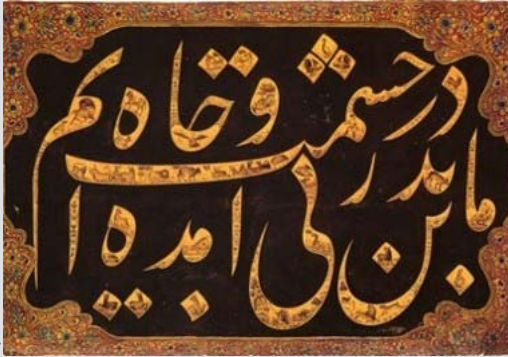 ما بدین در پی حشمت و جاه آمده ایم